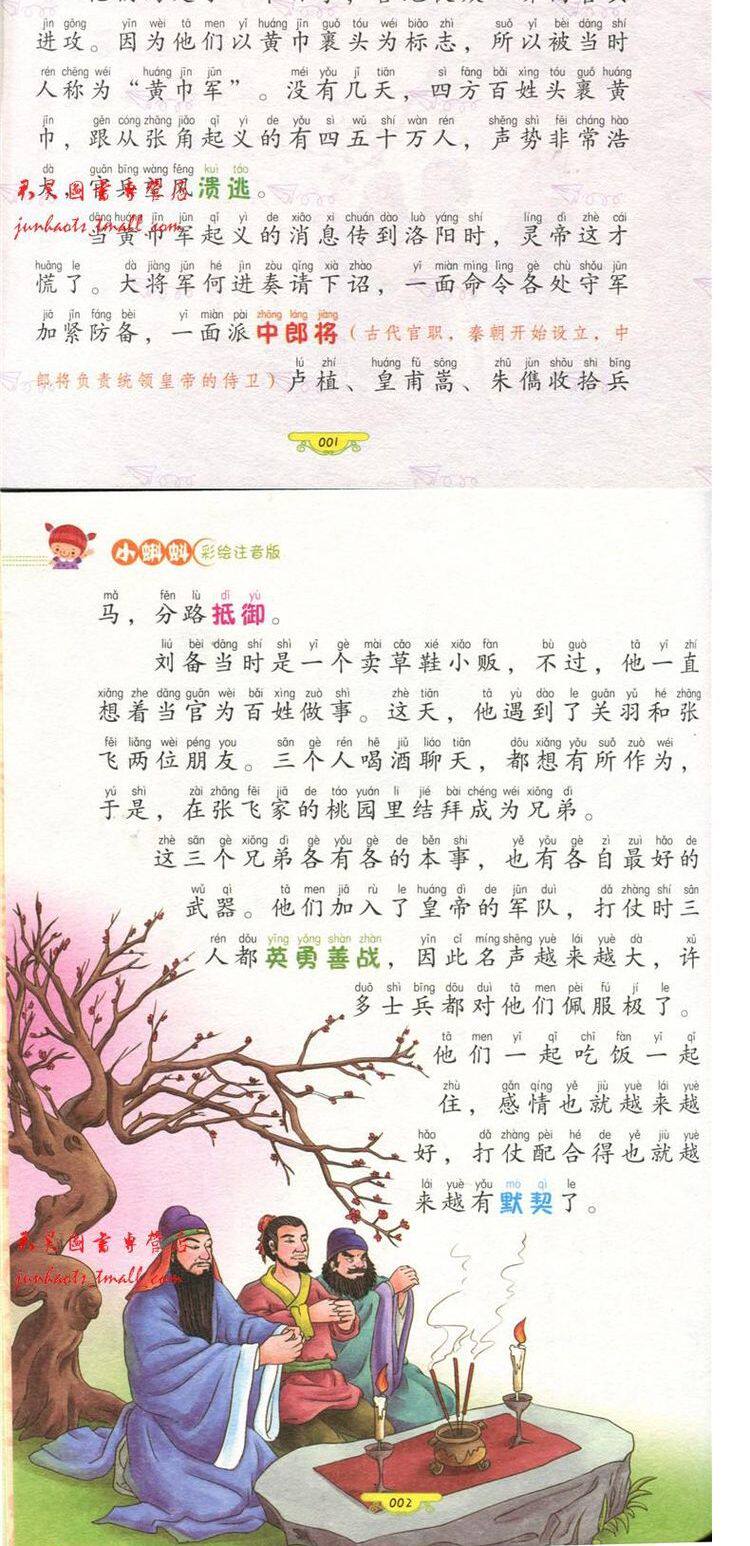 jìn gōng yīn wèi tā men yǐ huáng jīn guǒ tóu wéi biāo zhì suǒ yǐ bèi dāng shí
进攻。因为他们以黄巾裹头为标志，所以被当时
rén chēng wéi huáng jīn jūn méi yǒu jǐ tiān sì fāng bǎi xìng tóu guǒ huáng
人称为“黄巾军”。没有几天，四方百姓头裹黄
jīn gēn cóng zhāng jiǎo qǐ yì de yǒu sì wǔ shí wàn rén shēng shì fēi cháng hào
巾，跟从张角起义的有四五十万人，声势非常浩
dà guān bīng wàng fēng kuì táo
大，官兵望风溃逃。
君昊图书专营店
junhaots.tmall.com
dāng huáng jīn jūn qǐ yì de xiāo xi chuán dào luò yáng shí líng dì zhè cái
当黄巾军起义的消息传到洛阳时，灵帝这才
huāng le dà jiāng jūn hé jìn zòu qǐng xià zhào yī miàn mìng lìng gè chù shǒu jūn
慌了。大将军何进奏请下诏，一面命令各处守军
jiā jǐn fáng bèi yī miàn pài zhōng láng jiàng
加紧防备，一面派中郎将（古代官职，秦朝开始设立，中
lú zhí huáng fǔ sōng zhū jùn shōu shi bīng
郎将负责统领皇帝的侍卫）卢植、皇甫嵩、朱儁收拾兵
001
小蝌蚪 彩绘注音版
mǎ fēn lù dǐ yù
马，分路抵御。
liú bèi dāng shí shì yī gè mài cǎo xié xiǎo fàn bù guò tā yī zhí
刘备当时是一个卖草鞋小贩，不过，他一直
xiǎng zhe dāng guān wèi bǎi xìng zuò shì zhè tiān tā yù dào le guān yǔ hé zhāng
想着当官为百姓做事。这天，他遇到了关羽和张
fēi liǎng wèi péng you sān gè rén hē jiǔ liáo tiān dōu xiǎng yǒu suǒ zuò wéi
飞两位朋友。三个人喝酒聊天，都想有所作为，
yú shì zài zhāng fēi jiā de táo yuán li jié bài chéng wéi xiōng dì
于是，在张飞家的桃园里结拜成为兄弟。
zhè sān gè xiōng dì gè yǒu gè de běn shi yě yǒu gè zì zuì hǎo de
这三个兄弟各有各的本事，也有各自最好的
wǔ qì tā men jiā rù le huáng dì de jūn duì dǎ zhàng shí sān
武器。他们加入了皇帝的军队，打仗时三
rén dōu yīng yǒng shàn zhàn yīn cǐ míng shēng yuè lái yuè dà xǔ
人都英勇善战，因此名声越来越大，许
duō shì bīng dōu duì tā men pèi fú jí le
多士兵都对他们佩服极了。
tā men yī qǐ chī fàn yī qǐ
他们一起吃饭一起
zhù gǎn qíng yě jiù yuè lái yuè
住，感情也就越来越
hǎo dǎ zhàng pèi hé de yě jiù yuè
好，打仗配合得也就越
lái yuè yǒu mò qì le
来越有默契了。
君昊图书专营店
junhaots.tmall.com
002